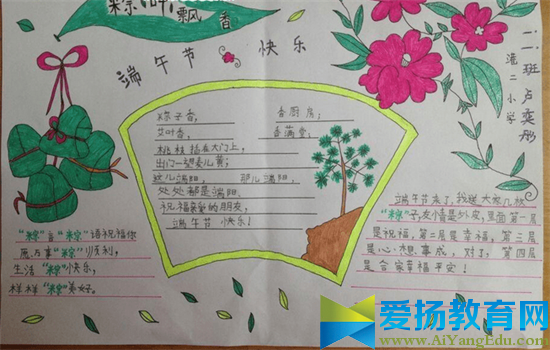 粽叶飘香
端午节 快乐
二.二班 卢奕彤
淮二小学
粽子香, 香厨房;
艾叶香, 香满堂;
桃枝插在大门上,
出门一望麦儿黄;
这儿端阳, 那儿端阳,
处处都是端阳.
祝福亲爱的朋友,
端午节 快乐!
"粽"言"粽"语祝福你
愿万事"粽"顺利,
生活"粽"快乐,
样样"粽"美好。
端午节来了,我送大家几枚
"粽"子,友情是外皮,里面第一层
是祝福,第二层是幸福,第三层
是心想事成,对了,第四层
是合家幸福平安!
爱扬教育网
www.AiYangEdu.com